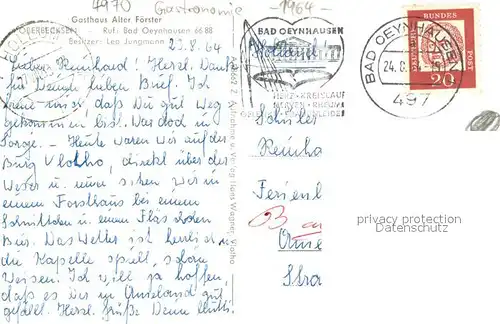 4970
Gastronomie
-1964-
Gasthaus Alter Förster
OBERBECKSEN - Ruf: Bad Oeynhausen 66 88
Besitzer: Leo Jungmann
23.8.64
Lieber Reinhard! Herzl. Dank
für Deinen lieben Brief. Ich
freue mich, dass Du gut weg
gekommen bist. War doch in
Sorge. - Heute waren wir auf der
Burg Vlotho, direkt über der
Weser u. nun sitzen wir in
einem Forsthaus bei einem
Schnittchen u. einem Fläschchen
Bier. Das Wetter ist herrlich,
die Kapelle spielt, schöne
Weisen. Ich will ja hoffen,
daß es Dir im Ameland gut
gefällt. Herzl. Grüße Deine Mutti.
Aufnahme u. Verlag Hans Wagner, Vlotho
BAD OEYNHAUSEN
HERZ-KREISLAUF
NERVEN-RHEUMA
Holland
BAD OEYNHAUSEN
24.8.
497
DEUTSCHE
BUNDES
POST
20
Schüler
Reinha
Ferienl
Ame
Stra
privacy protection
Datenschutz